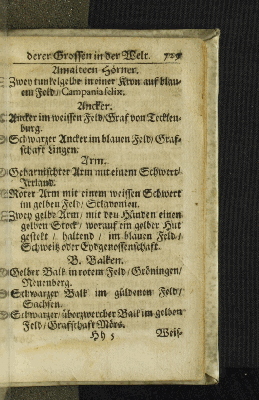 derer Grossen in der Welt. 729
Amalteen Hörner.
Zwey tunkelgelbe in einer Kron auf blau-
em Feld/ Campania felix.
Ancker.
Ancker im weissen Feld/ Graf von Tecklen-
burg.
Schwarzer Ancker im blauen Feld/ Graf-
schaft Lingen.
Arm.
Geharnischter Arm mit einem Schwert/
Irrland.
Roter Arm mit einem weissen Schwert
im gelben Feld/ Sclavonien.
Zwey gelbe Arm/ mit den Händen einen
gelben Stock/ worauf ein gelber Hut
gesteckt/ haltend/ im blauen Feld/
Schweitz oder Eydgenossenschaft.
B. Balken.
Gelber Balk in rotem Feld/ Gröningen/
Neuenberg.
Schwarzer Balk im güldenen Feld/
Sachsen.
Schwarzer/ überzwercher Balk im gelben
Feld/ Grafschaft Mörs.
Hh 5 Weis-